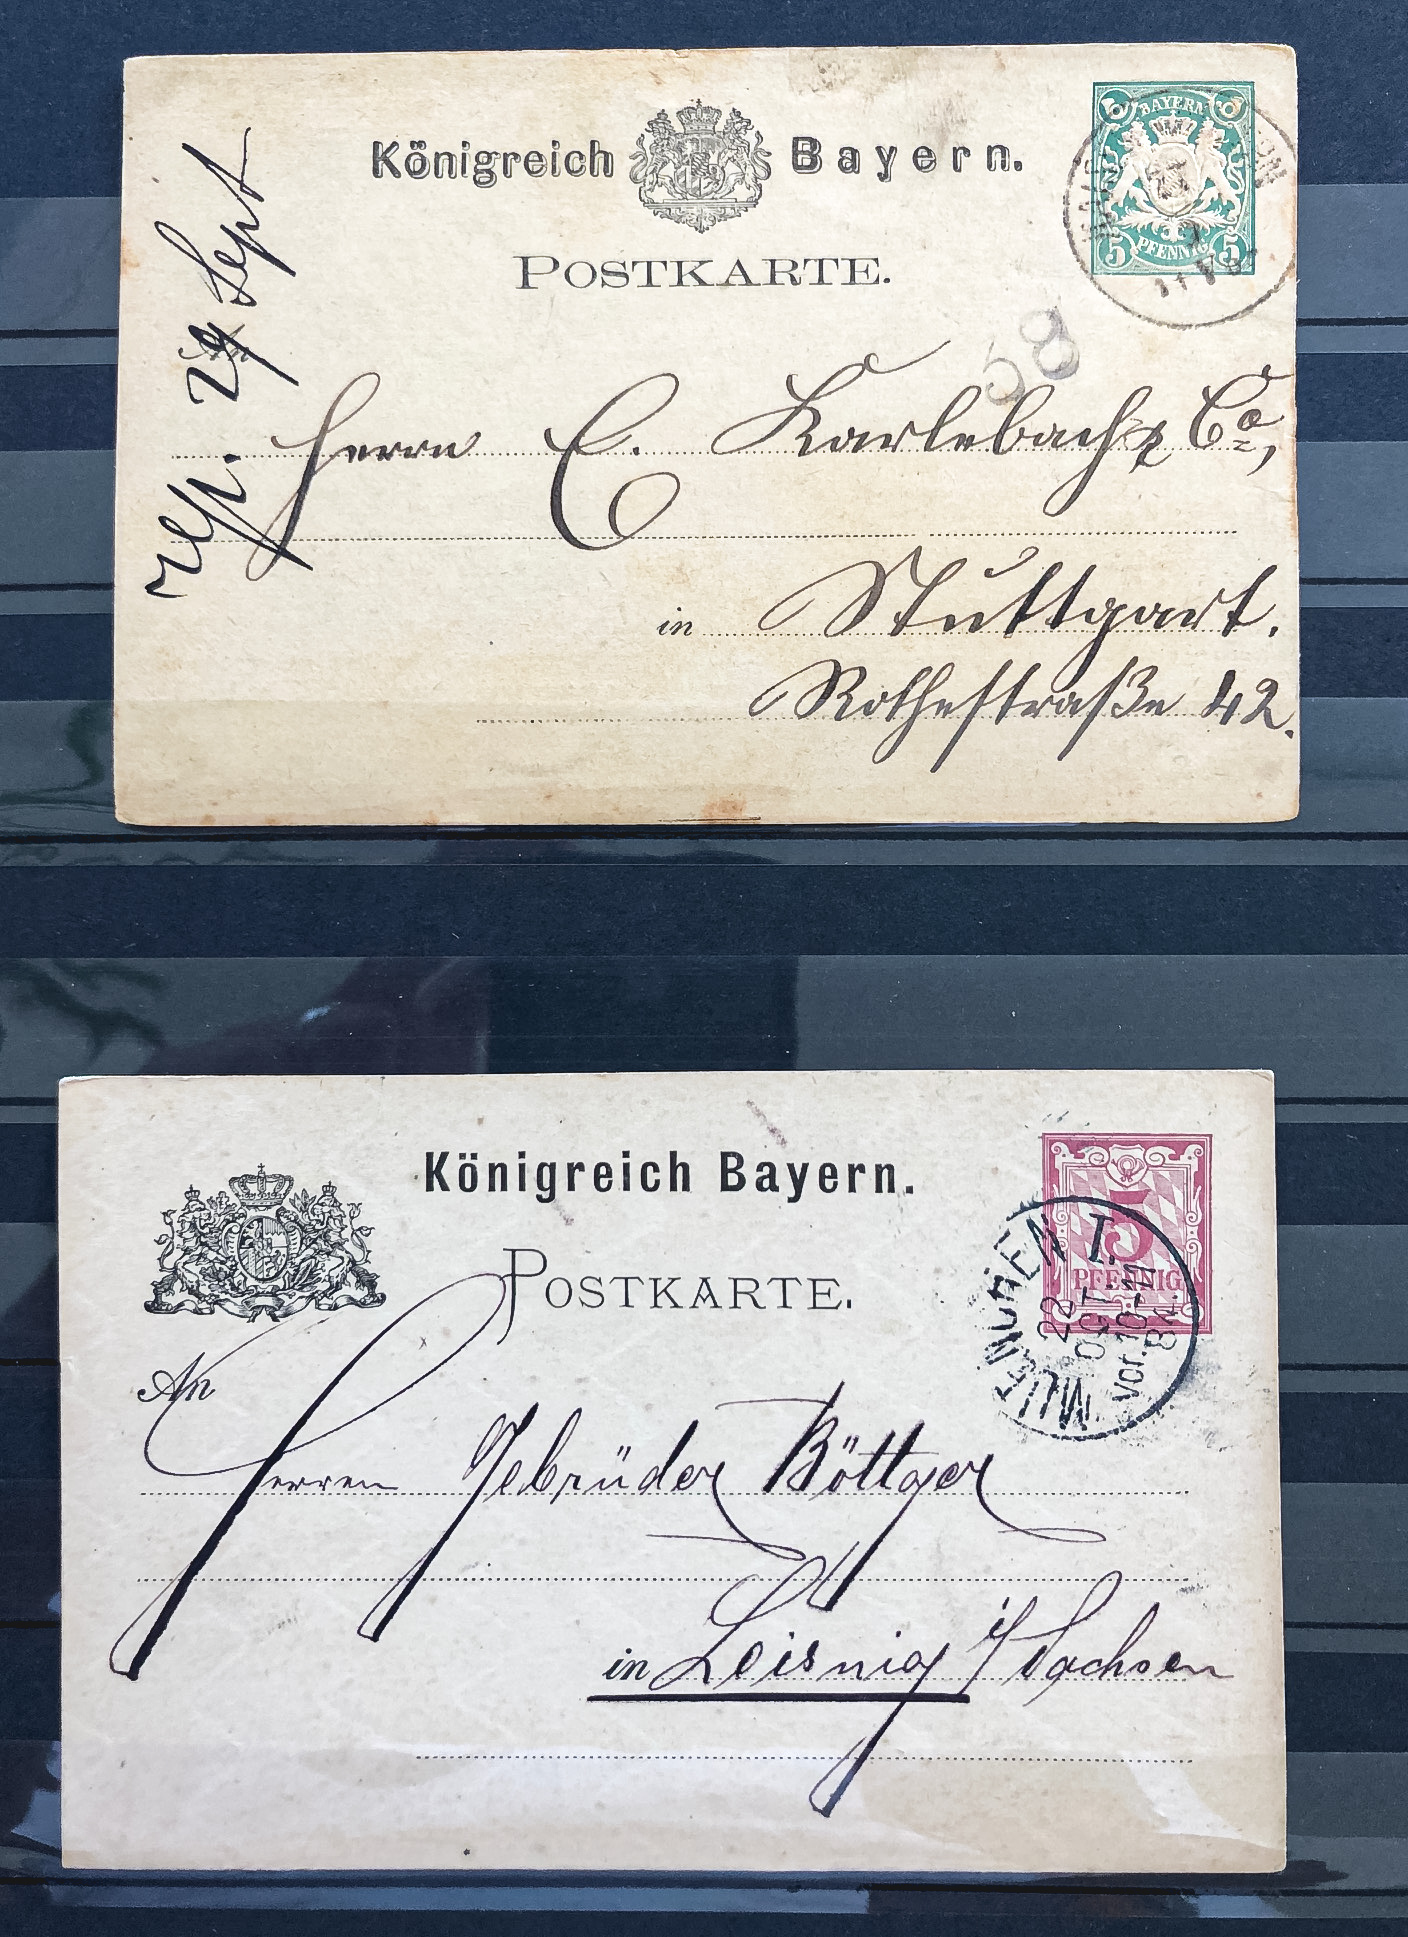 Königreich Bayern.
POSTKARTE.
5 BAYERN 5
5 PFENNIG 5
resp. 29 Sept
58
An
Herrn C. Karlebach & Co,
in Stuttgart.
Rothestraße 42.
Königreich Bayern.
POSTKARTE.
5
PFENNIG
MUENCHEN I.
22
OCT.
Vor. 10-11
84.
An
Herren Gebrüder Böttger
in Leisnig i/Sachsen